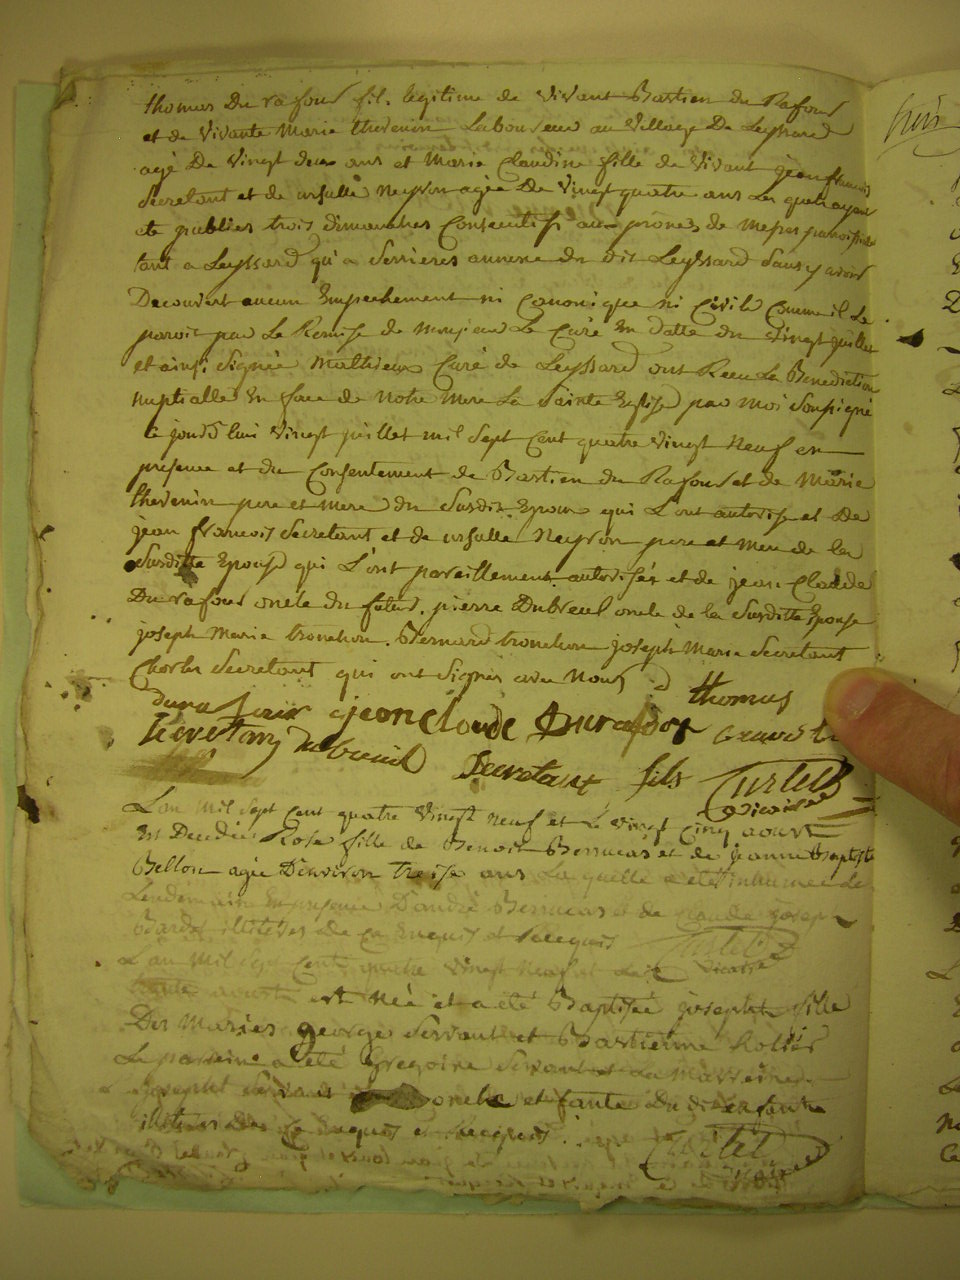 thomas Du rafour fils legitime de vivant Bastien du Rafour
et de Vivante Marie thevenin Laboureur au Village De Leyssard
agé De vingt deux ans et Marie Claudine fille de Vivant jean francois
Secretant et de ursulle neyron agée De Vingt quatre ans Les quels ayant
été publies trois dimanches Consecutifs aux prônes de messes paroissiales
tant a Leyssard qu'a Serrieres annexe du dit Leyssard Sans y avoir
Decouvert aucun Empechement ni Canonique ni Civile Comme il Le
paroit par Le Remise de monsieur Le Curé En datte du vingt juillet
et ainsi Signée Mathieux Curé de Leyssard ont Recu La Benediction
nuptialle En face de Notre Mere La Sainte Eglise par moi Soussigné
ce jourd'hui Vingt juillet mil Sept Cent quatre vingt neuf en
presence et du Consentement de Bastien du Rafour et de Marie
thevenin pere et mere du Susdit Epoux qui L'ont autorisé et De
jean francois Secretant et de ursulle Neyron pere et mere de la
Susditte Epouse qui L'ont pareillement autorisée et de jean Claude
Du rafour oncle du futur, pierre Dubreuil oncle de la Susditte Epouse
joseph Marie tronchon, Bernard tronchon joseph Marie Secretant
Charles Secretant qui ont Signés avec Nous
thomas
durafour jean Cloude Durafor
Secretan dubreuil Secretant fils
Curtet
Vicaire
L'an mil Sept Cent quatre Vingt neuf et Le vingt Cinq aoust
Est Decedée Rose fille de Benoit Berrucas et de jeanne Baptiste
Bellon agée D'environ treise ans La quelle a été inhumée Le
Lendemain En presence D'andré Berrucas et de Claude joseph
Bardet illiterés De Ce Enquis et Recquis Curtet
Vicaire
L'an Mil Sept Cent quatre Vingt neuf et Le
trente aoust est Née et a été Baptisée josephte fille
Des Mariés george Servant et Bastienne
Le parrein a été Gregoire Servant et La Marreine
josephte Servant oncle et tante Du dit enfant
illiterés De Ce Enquis et Recquis Curtet
Vicaire